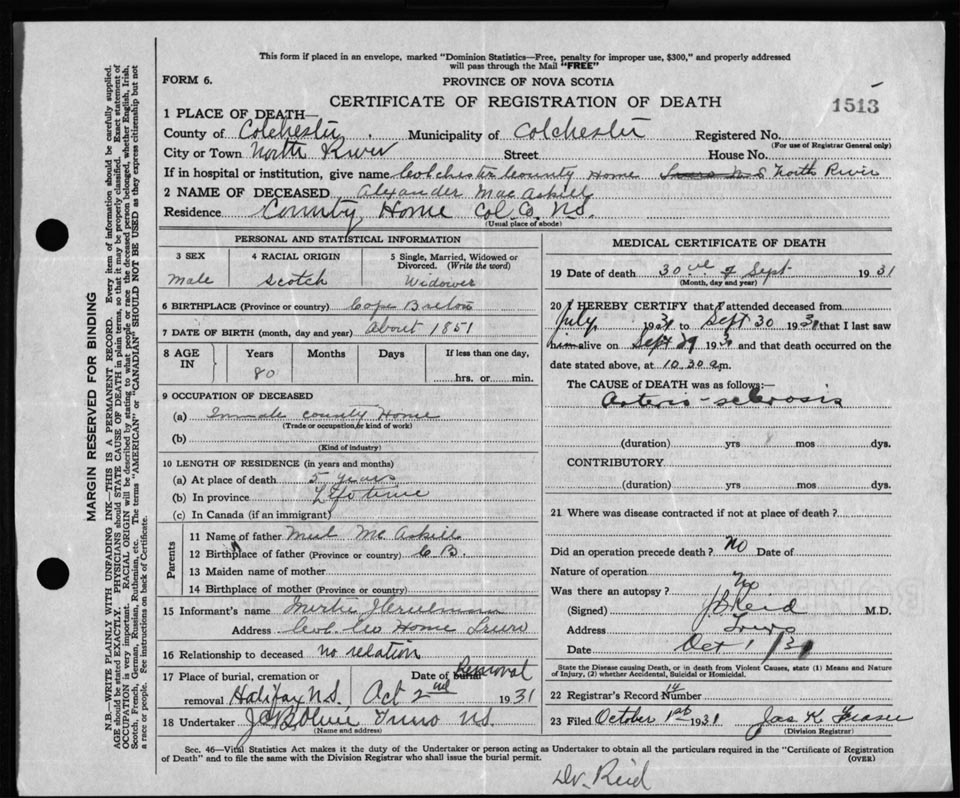 This form if placed in an envelope, marked "Dominion Statistics—Free, penalty for improper use, $300," and properly addressed
will pass through the Mail "FREE"
FORM 6.
PROVINCE OF NOVA SCOTIA
CERTIFICATE OF REGISTRATION OF DEATH
1513
1 PLACE OF DEATH—
County of Colchester. Municipality of Colchester Registered No.
(For use of Registrar General only)
City or Town North River Street House No.
If in hospital or institution, give name Colchester County Home North River
2 NAME OF DECEASED Alexander MacAskill
Residence County Home Col. Co. N.S.
(Usual place of abode)
PERSONAL AND STATISTICAL INFORMATION
3 SEX 4 RACIAL ORIGIN 5 Single, Married, Widowed or
Divorced. (Write the word)
Male Scotch Widower
6 BIRTHPLACE (Province or country) Cape Breton
7 DATE OF BIRTH (month, day and year) About 1851
8 AGE IN Years Months Days If less than one day,
80 hrs. or min.
9 OCCUPATION OF DECEASED
(a) Inmate County Home
(Trade or occupation, or kind of work)
(b)
(Kind of industry)
10 LENGTH OF RESIDENCE (in years and months)
(a) At place of death 5 years
(b) In province Life time
(c) In Canada (if an immigrant)
Parents
11 Name of father Neil McAskill
12 Birthplace of father (Province or country) C B.
13 Maiden name of mother
14 Birthplace of mother (Province or country)
15 Informant's name
Address Col. Co Home Truro
16 Relationship to deceased no relation
17 Place of burial, cremation or Date of burial Removal
removal Halifax N.S. Oct 2nd 1931
18 Undertaker Truro N.S.
(Name and address)
MEDICAL CERTIFICATE OF DEATH
19 Date of death 30 Sept 1931
(Month, day and year)
20 I HEREBY CERTIFY that I attended deceased from
July 193 to Sept 30 193 that I last saw
him alive on Sept 29 193 and that death occurred on the
date stated above, at 10.30 a.m.
The CAUSE OF DEATH was as follows:—
Arterio-sclerosis
(duration) yrs mos dys.
CONTRIBUTORY
(duration) yrs mos dys.
21 Where was disease contracted if not at place of death?
Did an operation precede death? No Date of
Nature of operation
Was there an autopsy? No
(Signed) J B Reid M.D.
Address Truro
Date Oct 1/31
State the Disease causing Death, or in death from Violent Causes, state (1) Means and Nature
of Injury, (2) whether Accidental, Suicidal or Homicidal.
22 Registrar's Record Number 14
23 Filed October 1st 1931 Jas K Fraser
(Division Registrar)
Sec. 46—Vital Statistics Act makes it the duty of the Undertaker or person acting as Undertaker to obtain all the particulars required in the "Certificate of Registration
of Death" and to file the same with the Division Registrar who shall issue the burial permit. (OVER)
Dr. Reid
MARGIN RESERVED FOR BINDING
N.B.—WRITE PLAINLY WITH UNFADING INK—THIS IS A PERMANENT RECORD. Every item of information should be carefully supplied.
AGE should be stated EXACTLY. PHYSICIANS should STATE CAUSE OF DEATH in plain terms, so that it may be properly classified. Exact statement of
OCCUPATION is very important. RACIAL ORIGIN will be described by stating to what people or race the deceased person belonged, whether English, Irish,
Scotch, French, German, Russian, Ruthenian, etc. The terms "AMERICAN" or "CANADIAN" SHOULD NOT BE USED as they express citizenship but not
a race or people. See instructions on back of Certificate.